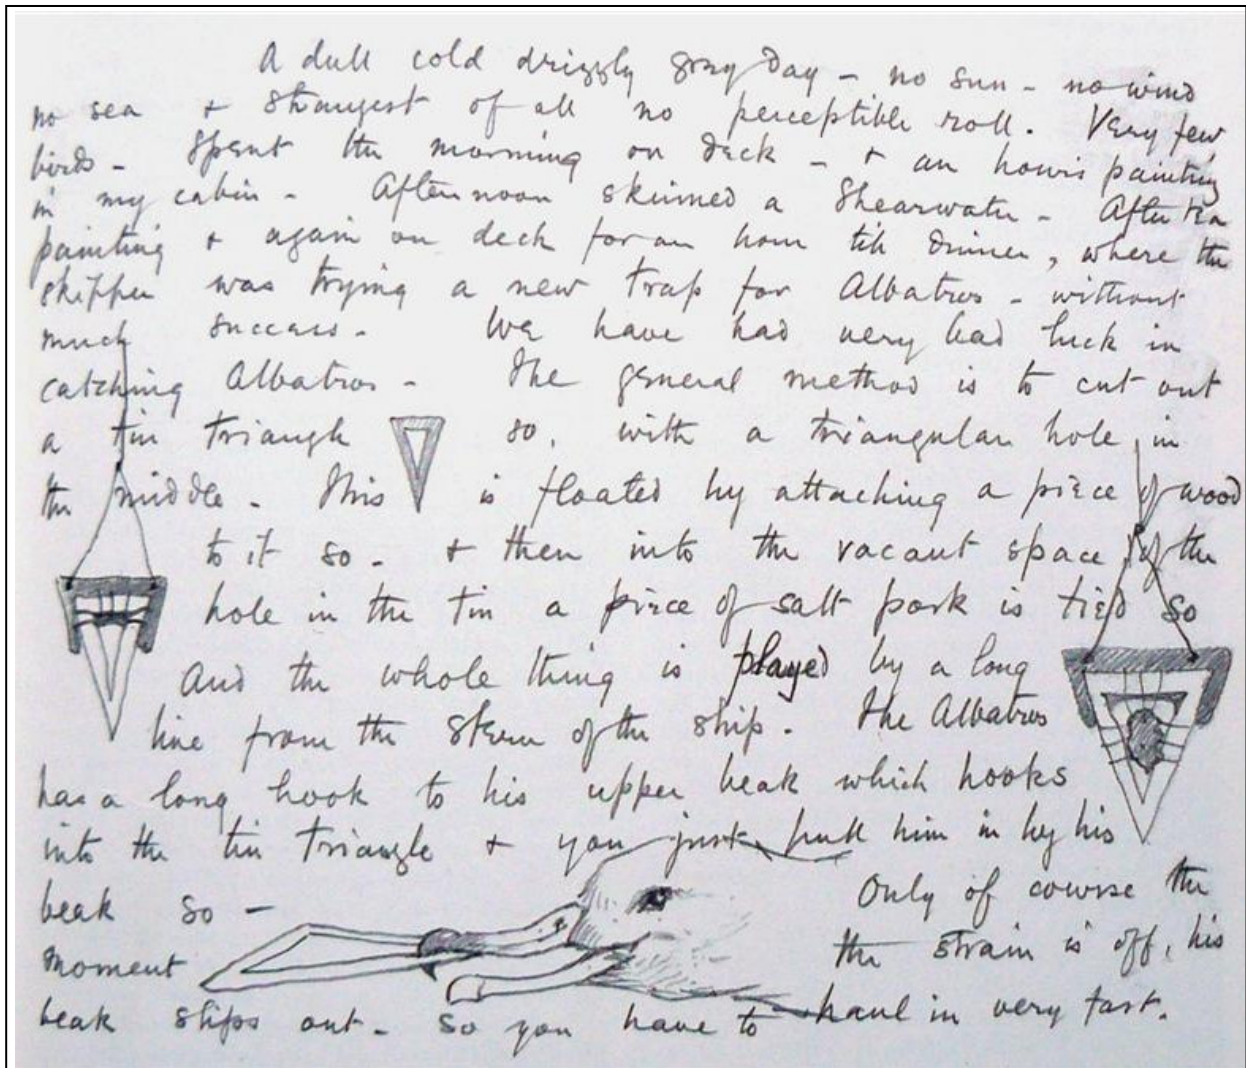 A dull cold drizzly gray day - no sun - no wind
no sea + strangest of all no perceptible roll. Very few
birds - Spent the morning on deck - + an hour's painting
in my cabin - Afternoon skinned a Shearwater - After tea
painting + again on deck for an hour till dinner, where the
skipper was trying a new trap for Albatros - without
much success - We have had very bad luck in
catching Albatros - The general method is to cut out
a tin triangle so, with a triangular hole in
the middle - This is floated by attaching a piece of wood
to it so - + then into the vacant space of the
hole in the tin a piece of salt pork is tied so
And the whole thing is played by a long
line from the stern of the ship. The Albatros
has a long hook to his upper beak which hooks
into the tin triangle + you just pull him in by his
beak so - Only of course the
moment the strain is off, his
beak slips out - so you have to haul in very fast.